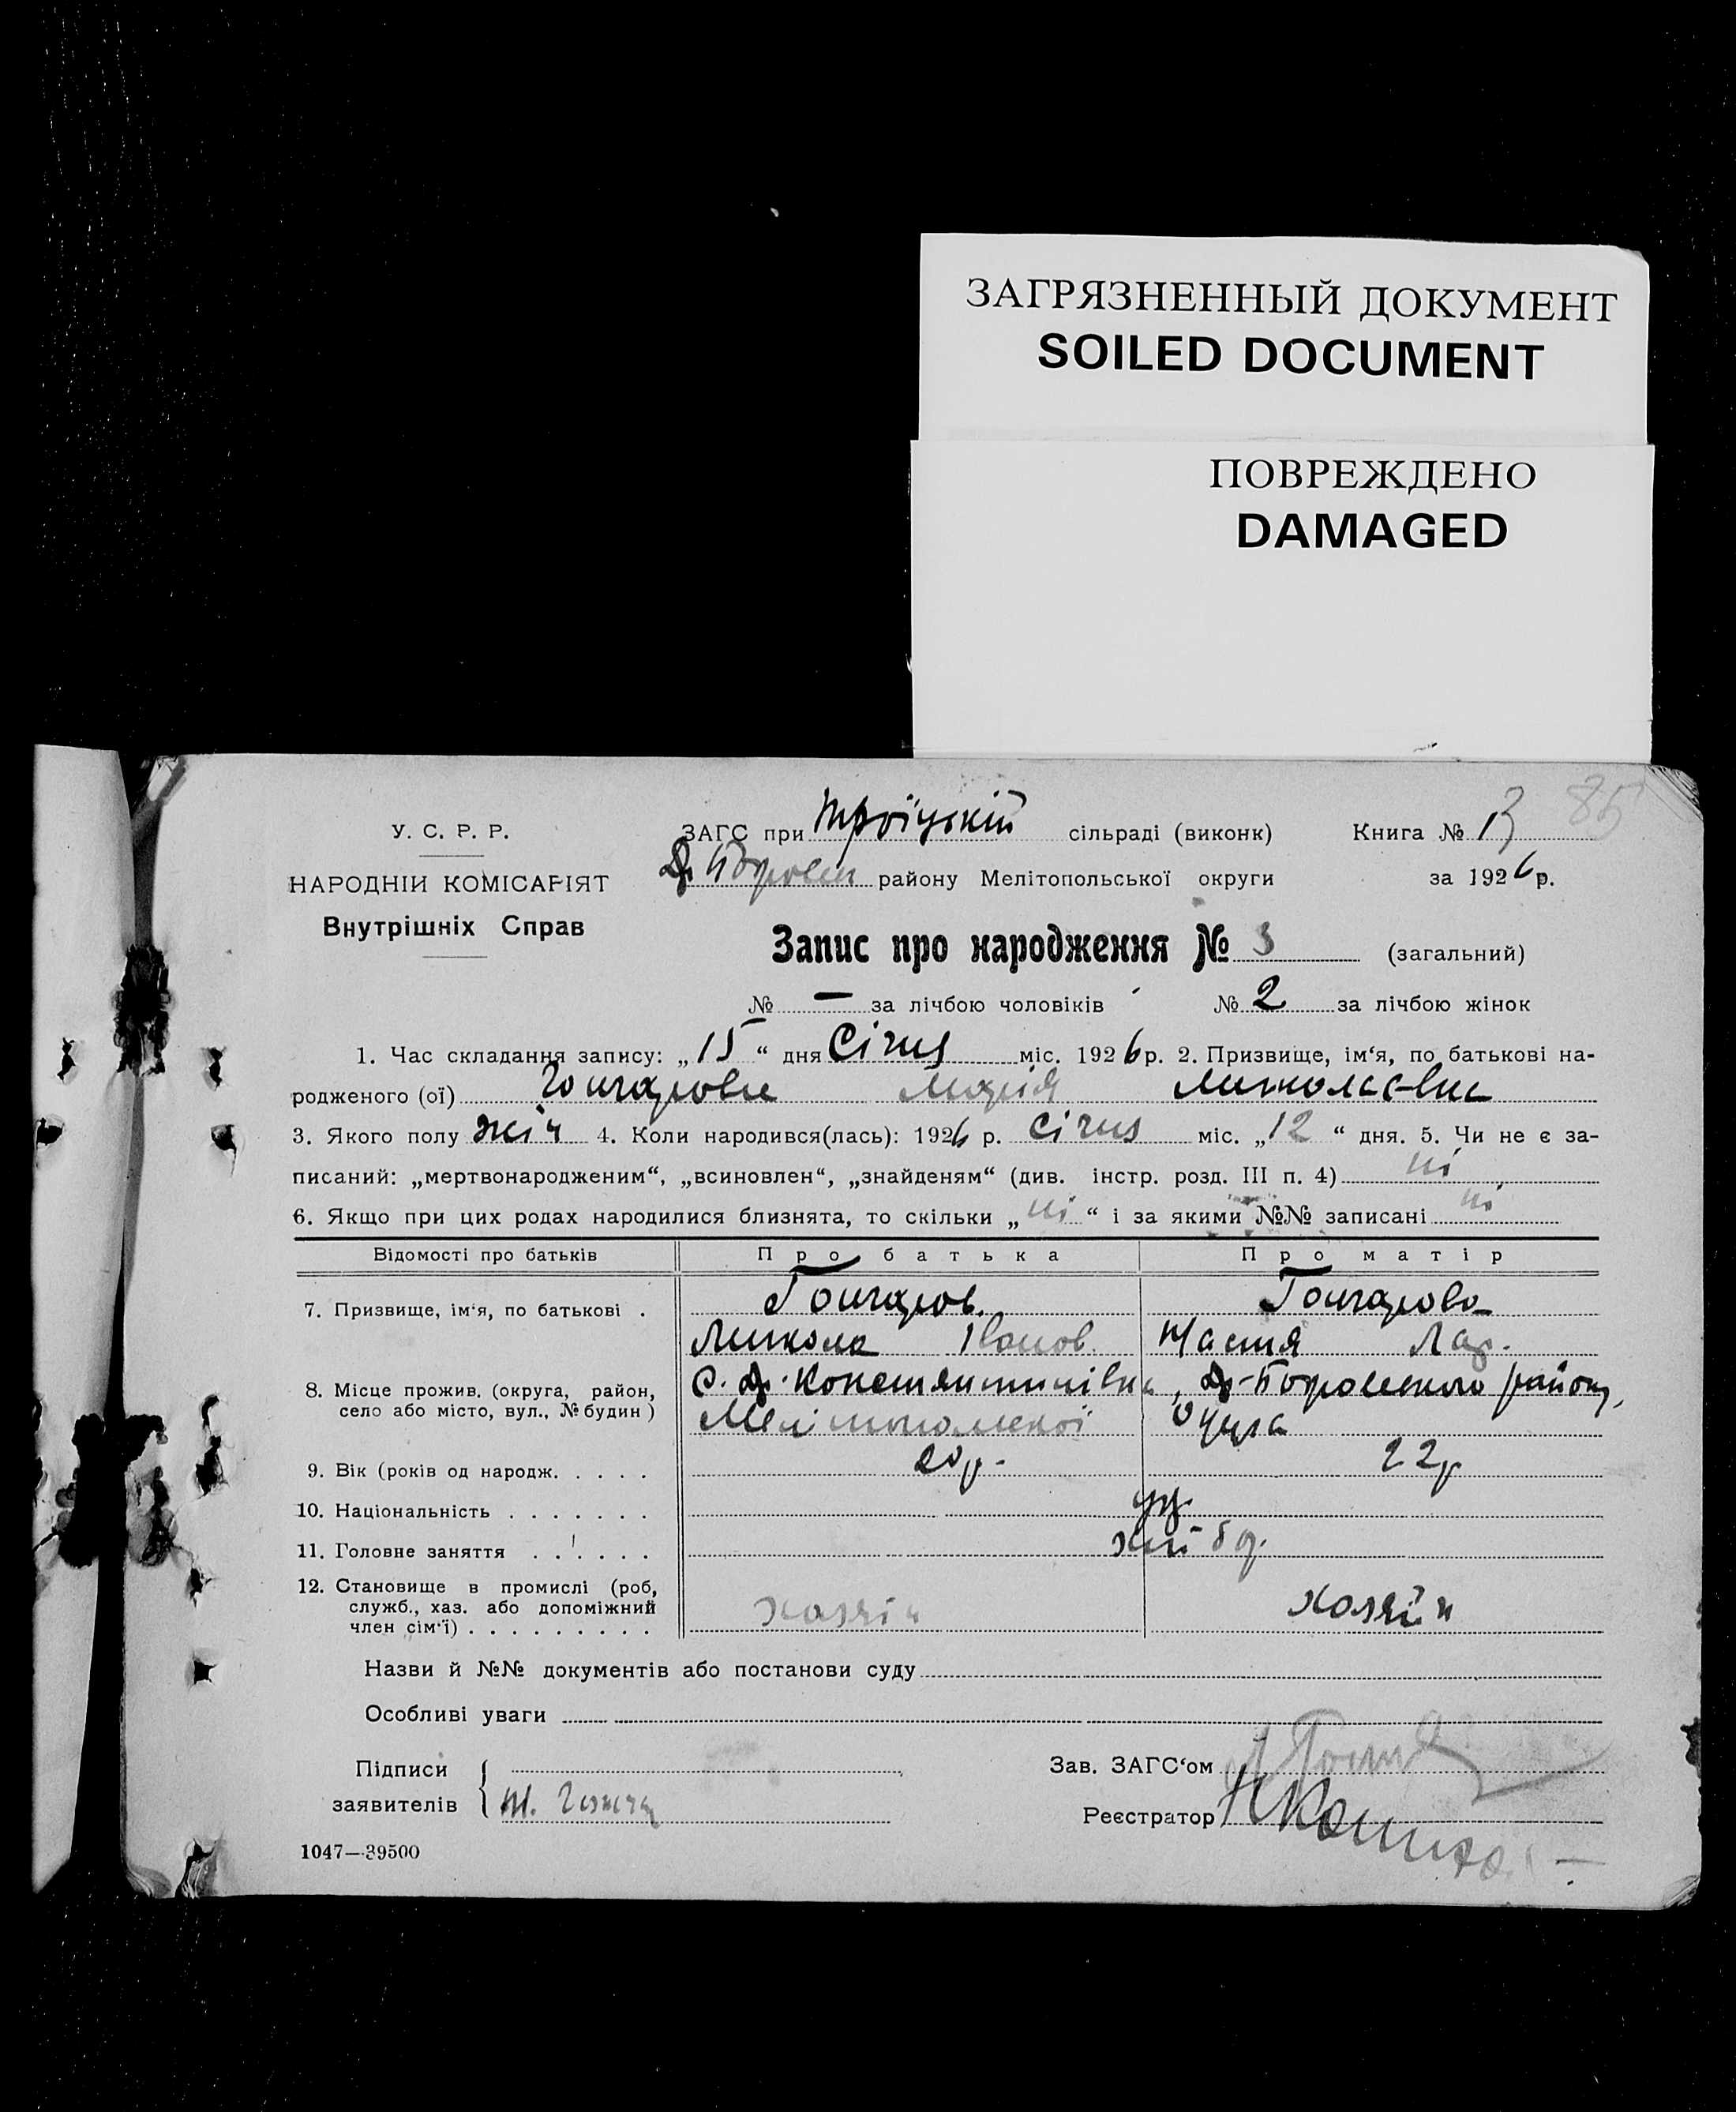 ЗАГРЯЗНЕННЫЙ ДОКУМЕНТ
SOILED DOCUMENT
ПОВРЕЖДЕНО
DAMAGED
85
У. С. Р. Р.
НАРОДНІЙ КОМІСАРІЯТ
Внутрішніх Справ
ЗАГС при Троїцькій сільраді (виконк) Книга № 13
району Мелітопольської округи за 1926 р.
Запис про народження № 3 (загальний)
№ — за лічбою чоловіків № 2 за лічбою жінок
1. Час складання запису: „15“ дня Січня міс. 1926 р. 2. Призвище, ім‘я, по батькові на-
родженого (ої) Гончарова Марія Миколаєвна
3. Якого полу жін 4. Коли народився(лась): 1926 р. Січня міс. „12“ дня. 5. Чи не є за-
писаний: „мертвонародженим“, „всиновлен“, „знайденям“ (див. інстр. розд. III п. 4) ні
6. Якщо при цих родах народилися близнята, то скільки „ні“ і за якими №№ записані ні
Відомості про батьків Про батька Про матір
7. Призвище, ім‘я, по батькові . Гончаров Гончарова
Микола Іванов. Настя Лар.
8. Місце прожив. (округа, район, С. Др. Константинівка, Др-
село або місто, вул., № будин) Мелітопольської
9. Вік (років од народж. . . . . 20 р. 22 р
10. Національність . . . . . . .
11. Головне заняття . . . . . .
12. Становище в промислі (роб,
служб., хаз. або допоміжний
член сім‘ї) . . . . . . . . . хозяїн хозяїн
Назви й №№ документів або постанови суду
Особливі уваги
Підписи
заявителів
Зав. ЗАГС‘ом
Реєстратор
1047—39500